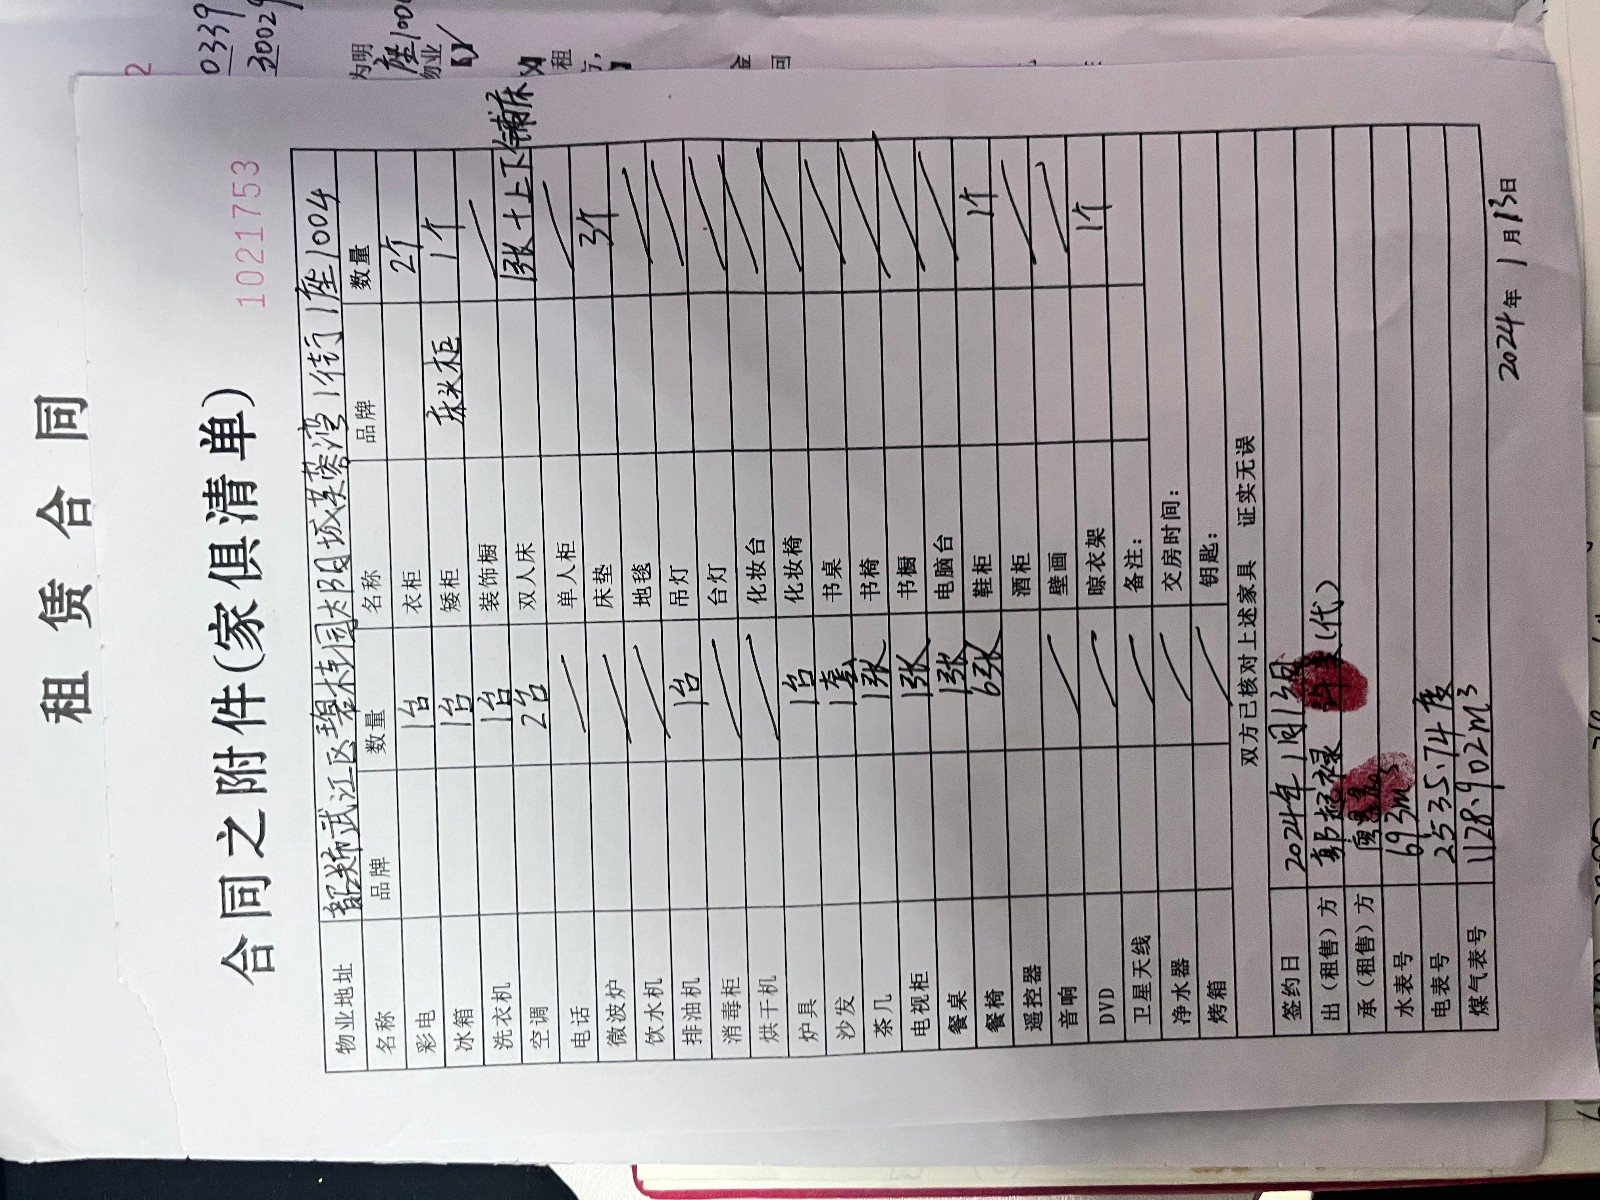 租赁合同
0339
30029
为明
座100
物业
租
合同之附件(家俱清单)
1021753
物业地址 韶关市武江区碧桂园太阳城芙蓉湾1街1座1004
名称 品牌 数量 名称 品牌 数量
彩电 1台 衣柜 2个
冰箱 1台 矮柜 床头柜 1个
洗衣机 1台 装饰橱
空调 2台 双人床 1张+上下铺床
电话 单人柜
微波炉 床垫 3个
饮水机 地毯
排油机 1台 吊灯
消毒柜 台灯
烘干机 化妆台
炉具 1台 化妆椅
沙发 1套 书桌
茶几 1张 书椅
电视柜 1张 书橱
餐桌 1张 电脑台
餐椅 6张 鞋柜 1个
遥控器 酒柜
音响 壁画
DVD 晾衣架 1个
卫星天线 备注:
净水器 交房时间:
烤箱 钥匙:
双方已核对上述家具 证实无误
签约日 2024年1月13日
出(租售)方 (代)
承(租售)方
水表号 693m³
电表号 2535.74度
煤气表号 1128.902m³
2024年1月13日